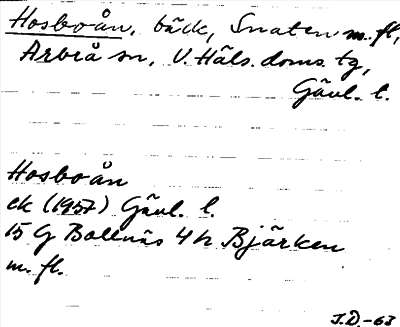 Hosboån, bäck, Snaten m. fl.,
Arbrå sn, V. Häls. doms. tg,
Gävl. l.
Hosboån
ek (1957) Gävl. l.
15 G Bollnäs 4 h Bjärken
m. fl.
J.D.-63